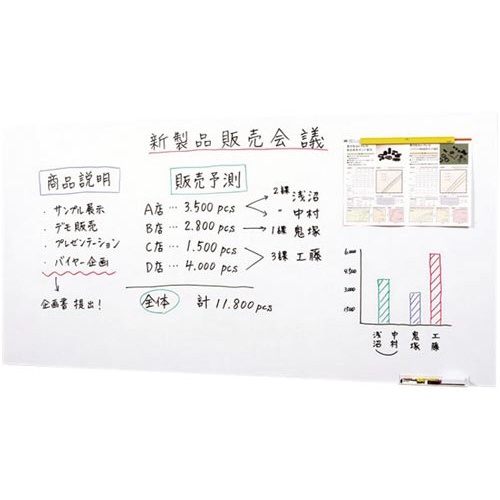 新製品販売会議
商品説明
・サンプル展示
・デモ販売
・プレゼンテーション
・バイヤー企画
企画書 提出!
販売予測
A店 … 3.500 pcs
B店 … 2.800 pcs
C店 … 1.500 pcs
D店 … 4.000 pcs
全体 計 11.800 pcs
2課 浅沼
〃 中村
1課 鬼塚
3課 工藤
6,000
4,500
3,000
1500
浅沼
中村
鬼塚
工藤